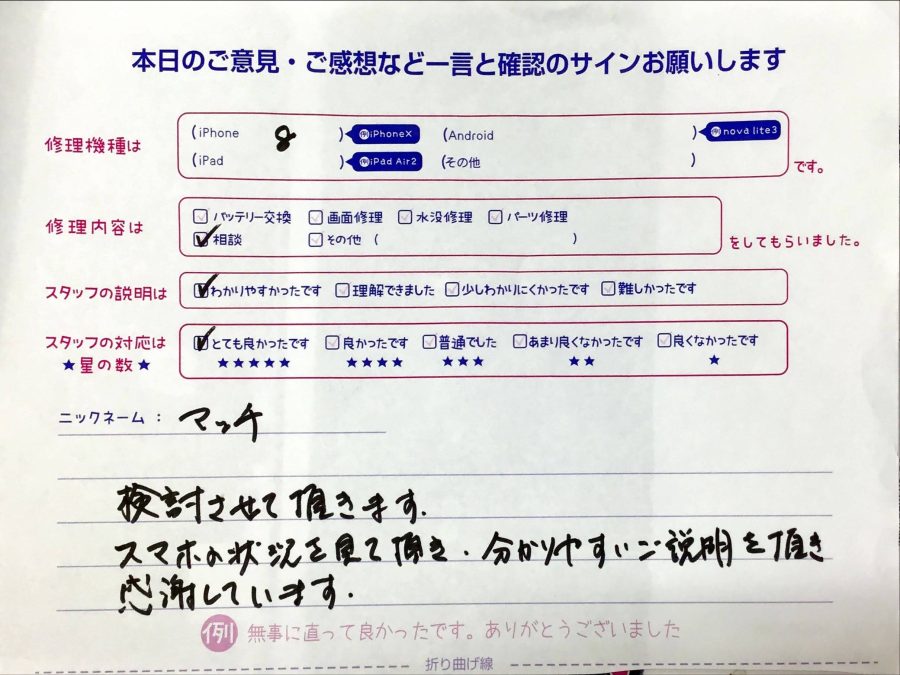 本日のご意見・ご感想など一言と確認のサインお願いします
修理機種は
(iPhone 8 ) 例iPhoneX (Android ) 例nova lite3
(iPad ) 例iPad Air2 (その他 )
です。
修理内容は
バッテリー交換 画面修理 水没修理 パーツ修理
相談 その他 ( )
をしてもらいました。
スタッフの説明は
わかりやすかったです 理解できました 少しわかりにくかったです 難しかったです
スタッフの対応は
★星の数★
とても良かったです 良かったです 普通でした あまり良くなかったです 良くなかったです
★★★★★ ★★★★ ★★★ ★★ ★
ニックネーム : マッチ
検討させて頂きます.
スマホの状況を見て頂き.分かりやすいご説明を頂き
感謝しています.
例 無事に直って良かったです。ありがとうございました
折り曲げ線